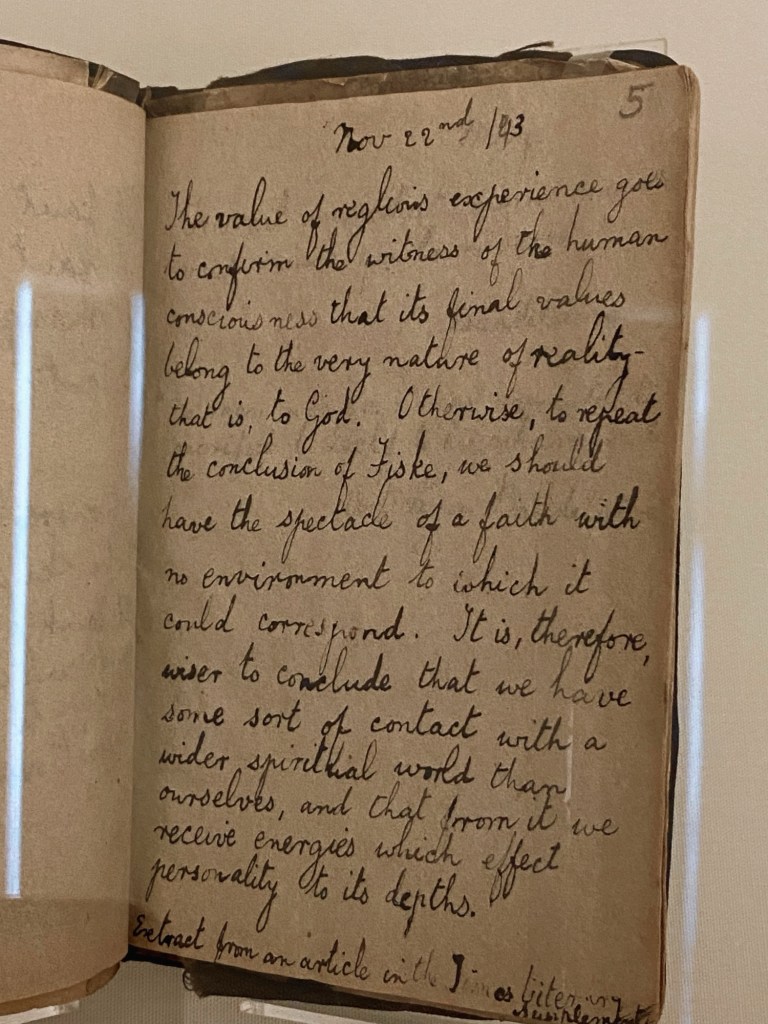 5
Nov 22nd /43
The value of reglious experience goes
to confirm the witness of the human
consciousness that its final values
belong to the very nature of reality -
that is, to God. Otherwise, to repeat
the conclusion of Fiske, we should
have the spectacle of a faith with
no environment to which it
could correspond. It is, therefore,
wiser to conclude that we have
some sort of contact with a
wider spiritual world than
ourselves, and that from it we
receive energies which effect
personality to its depths.
Extract from an article in the Times Literary
Supplement